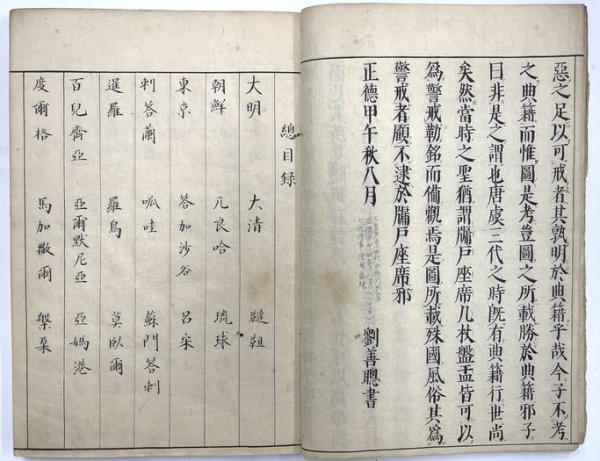 惡之足以可戒者其孰明於典籍乎哉今子不考
之典籍而惟圖是考豈圖之所載勝於典籍邪子
曰非是之謂也唐虞三代之時既有典籍行世尚
矣然當時之聖猶謂牖戶座席几杖盤盂皆可以
為警戒勒銘而備觀焉是圖所載殊國風俗其為
警戒者顧不逮於牖戶座席邪
正德甲午秋八月 劉善聰書
總目録
大明 大清 韃靼
朝鮮 兀良哈 琉球
東京 答加沙谷 呂宋
刺答蘭 呱哇 蘇門答刺
暹羅 羅烏 莫臥爾
百兒齊亞 亞爾默尼亞 亞媽港
度爾格 馬加撒爾 槃朶